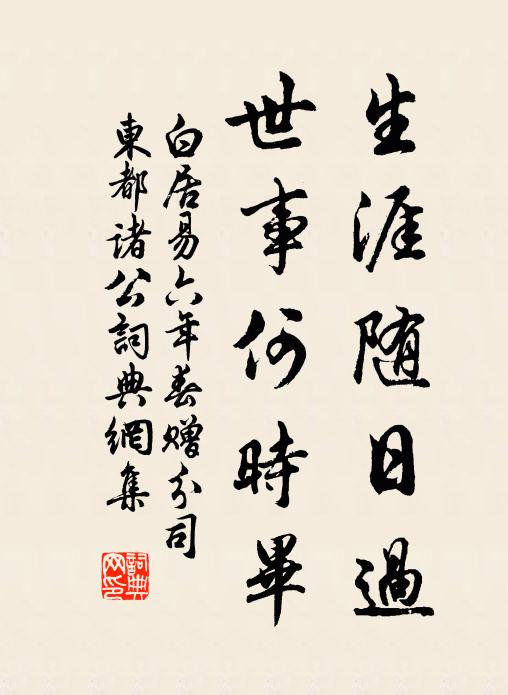 生涯随日過
世事何時畢
白居易六年春赠分司
東都诸公詞典網集
詞典网印